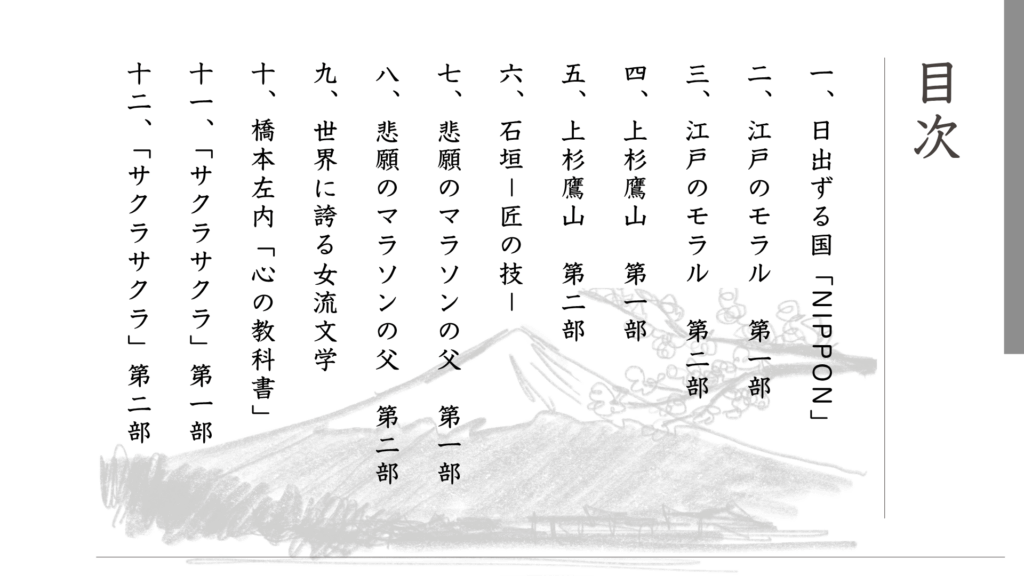 目次
一、日出ずる国「NIPPON」
二、江戸のモラル　第一部
三、江戸のモラル　第二部
四、上杉鷹山　第一部
五、上杉鷹山　第二部
六、石垣－匠の技－
七、悲願のマラソンの父　第一部
八、悲願のマラソンの父　第二部
九、世界に誇る女流文学
十、橋本左内「心の教科書」
十一、「サクラサクラ」第一部
十二、「サクラサクラ」第二部